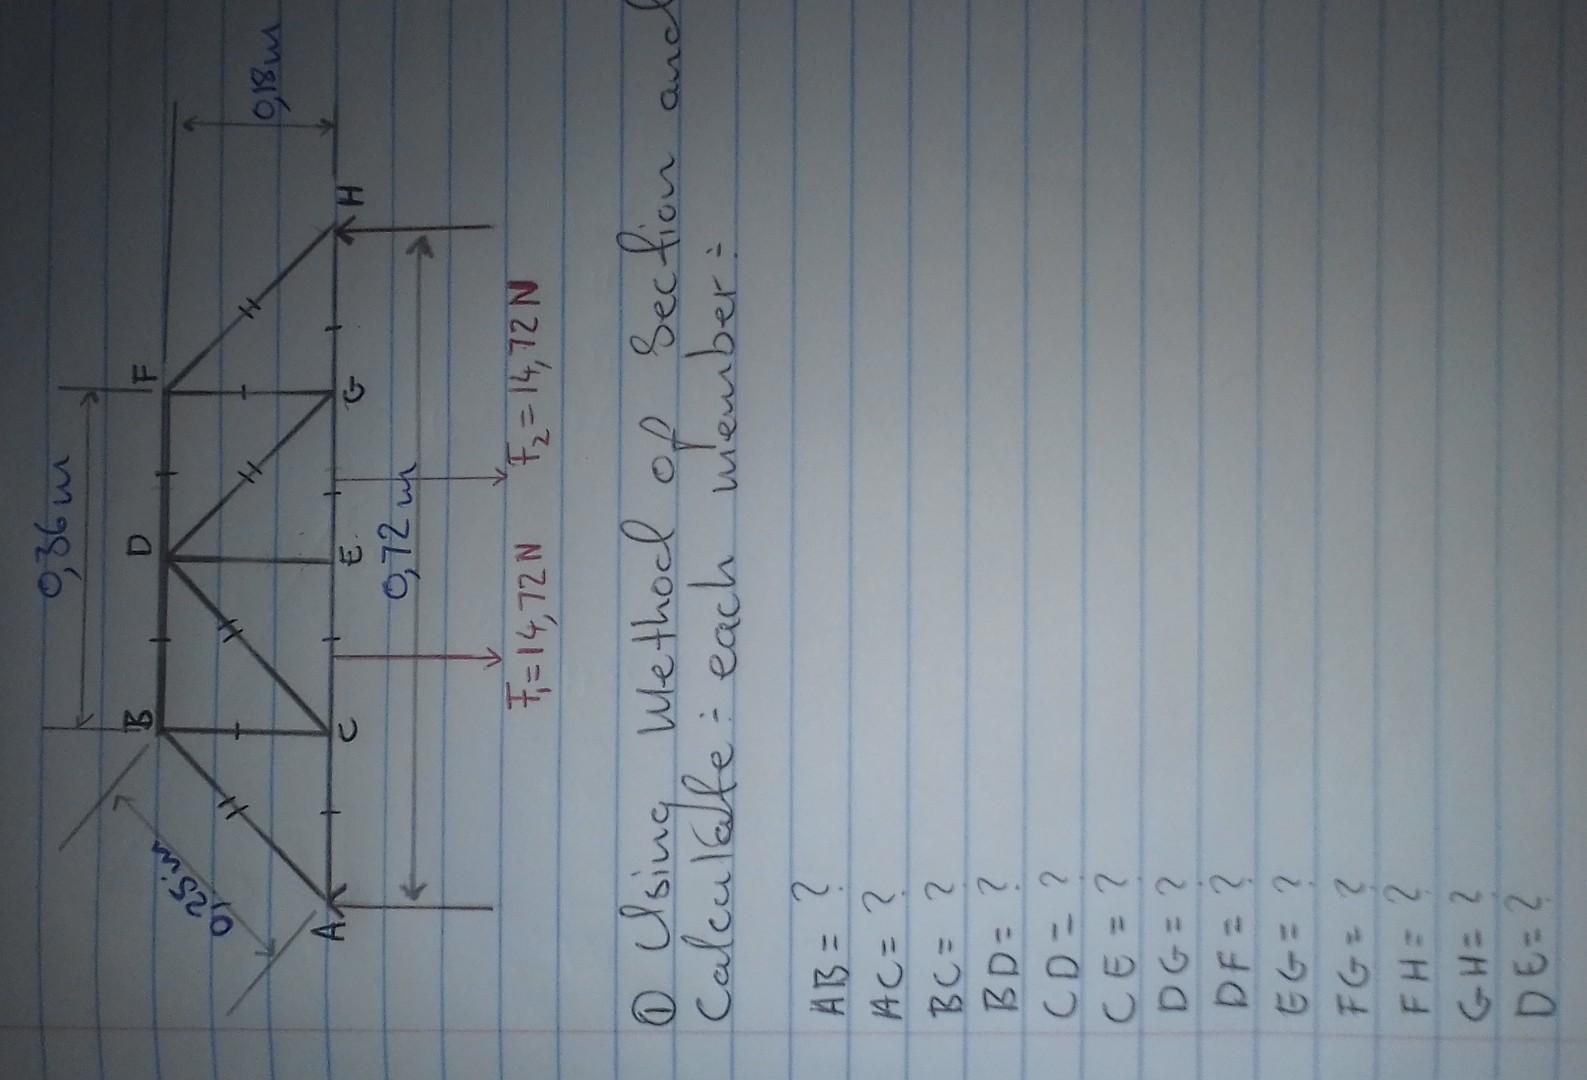 0,36m
B
D
F
0,18m
0,25m
A
C
E
G
H
0,72m
F₁=14,72N
F₂=14,72N
① Using Method of Section and
Calculate : each member :
AB = ?
AC = ?
BC = ?
BD = ?
CD = ?
CE = ?
DG = ?
DF = ?
EG = ?
FG = ?
FH = ?
GH = ?
DE = ?